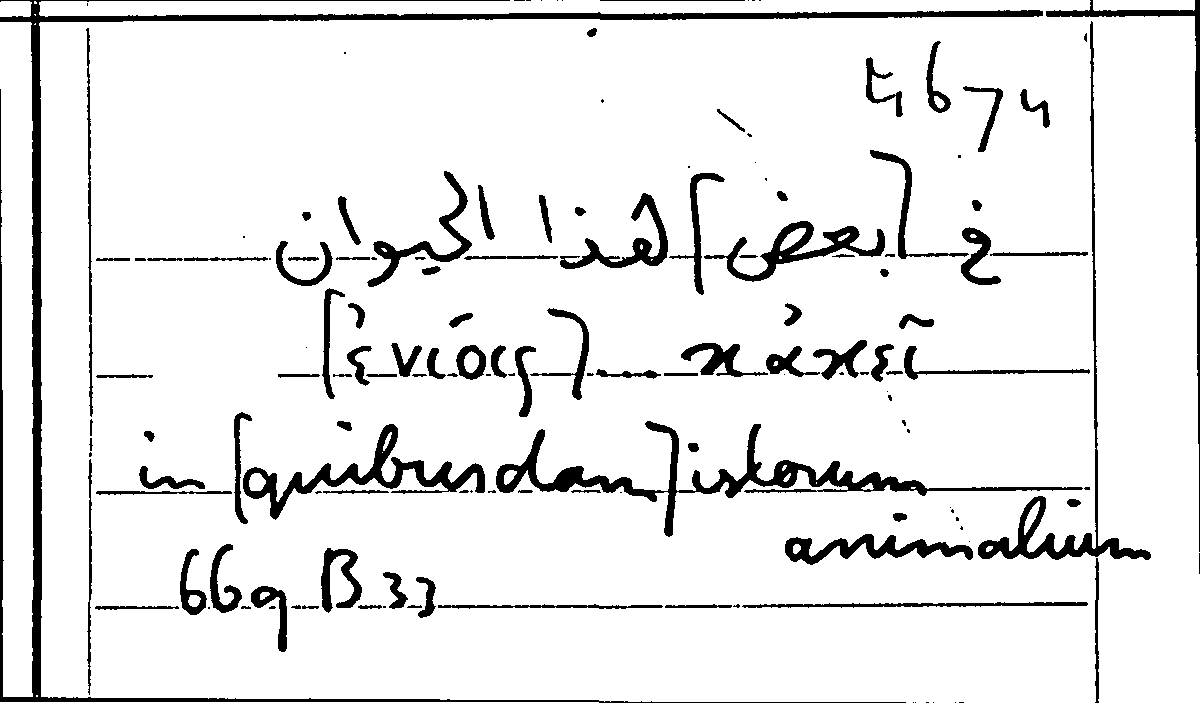 4674
في [بعض] هذا الحيوان
[ἐνίοις] ... κἀκεῖ
in [quibusdam] istorum
animalium
669 B 33